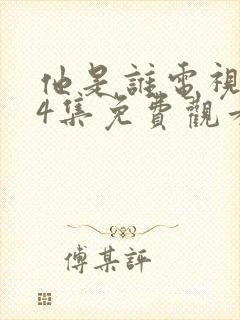 他是誰電視
4集免費觀看
傅某評